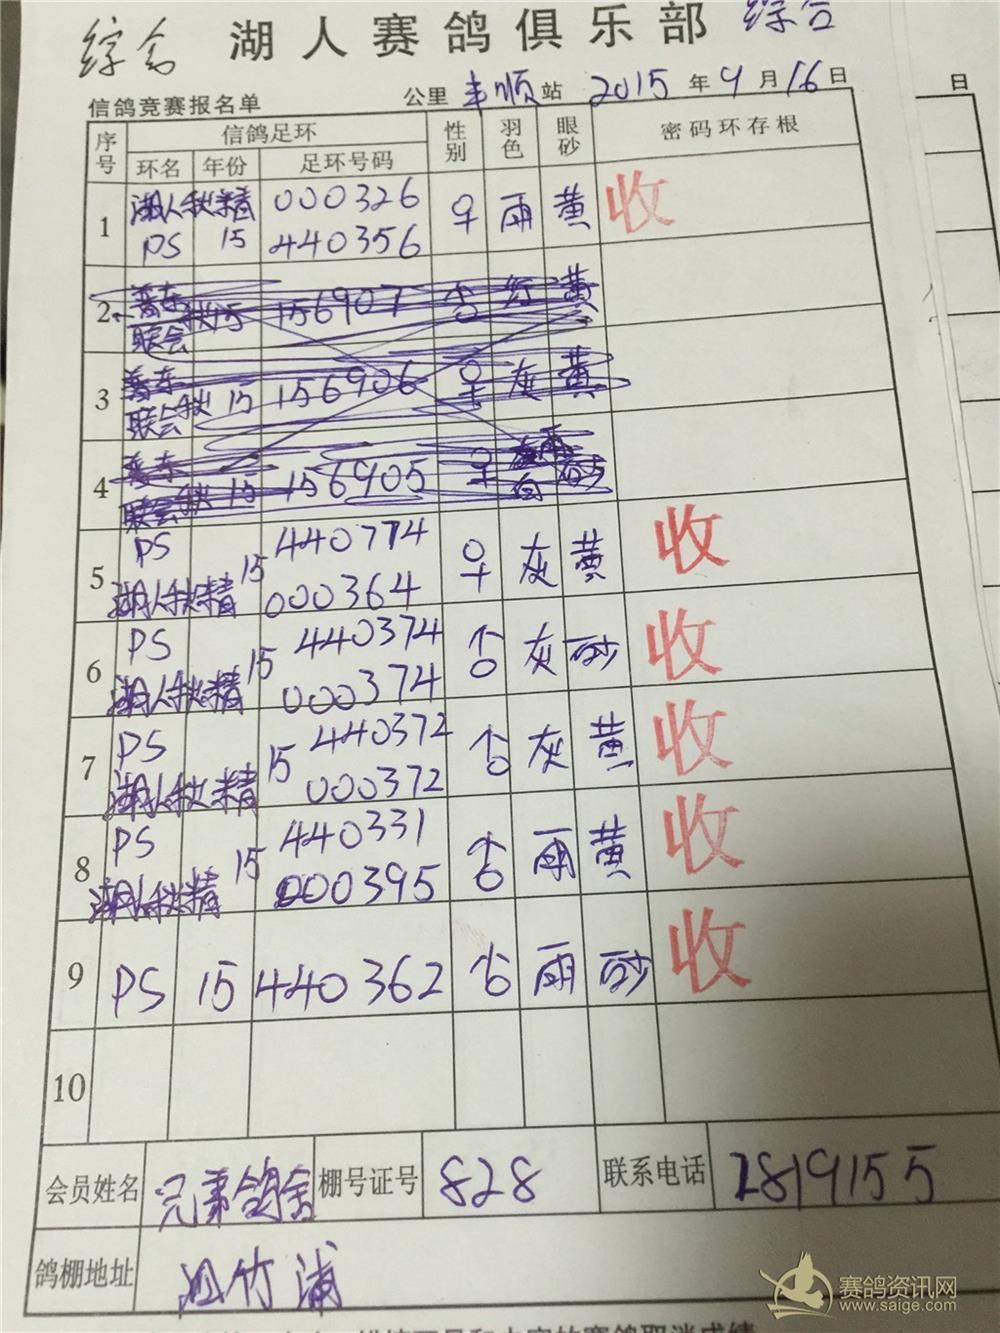 综合 湖人赛鸽俱乐部 综合
信鸽竞赛报名单 公里 丰顺 站 2015 年 9 月 16 日
日
序号 信鸽足环 性别 羽色 眼砂 密码环存根
环名 年份 足环号码
湖人秋精 000326
1 ♀ 雨 黄 收
PS 15 440356
2 秋15 156907 黄
联会
3 156906 ♀ 灰 黄
联会秋 15
4 156905 ♀
联会秋 15
PS 440774
5 15 ♀ 灰 黄 收
湖人秋精 000364
PS 440374
6 15 ♂ 灰 砂 收
湖人秋精 000374
PS 440372
7 15 ♂ 灰 黄 收
湖人秋精 000372
PS 440331
8 15 ♂ 雨 黄 收
湖人秋精 000395
9 PS 15 440362 ♂ 雨 砂 收
10
会员姓名 兄弟鸽舍 棚号证号 828 联系电话 2819155
鸽棚地址 竹浦
赛鸽资讯网
www.saige.com